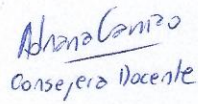 Adriana Camizo
Consejera Docente